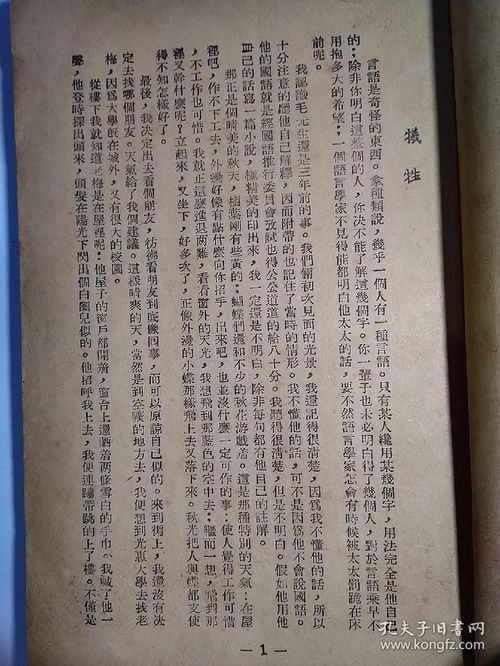 犧牲
言語是奇怪的東西。拿種類說，幾乎一個人有一種言語。只有某人纔用某幾個字，用法完全是他自己
的；除非你明白這整個的人，你決不能了解這幾個字。你一輩子也未必明白得了幾個人，對於言語乘早不
用抱多大的希望；一個語言學家不見得能都明白他太太的話，要不然語言學家怎會有時候被太太罰跪在床
前呢。
我認識毛先生還是三年前的事。我們倆初次見面的光景，我還記得很清楚，因爲我不懂他的話，所以
十分注意的聽他自己解釋，因而附帶的也記住了當時的情形。我不懂他的話，可不是因爲他不會說國語。
他的國語就是經國語推行委員會攷試也得公公道道的給八十分。我聽得很清楚，但是不明白，假如他用他
自己的話寫一篇小說，極精美的印出來，我一定還是不明白，除非每句都有他自己的註解。
那正是個晴美的秋天，樹葉剛有些黃的；蝴蝶們還和不少的秋花游戲着。這是那種特別的天氣：在屋
裡吧，作不下工去，外邊好像有點什麼向你招手；出來吧，也並沒什麼一定可作的事：使人覺得工作可惜
，不工作也可惜。我就正這麼進退兩難，看看窗外的天光，我想飛到那藍色的空中去；繼而一想，飛到那
裡又幹什麼呢？立起來，又坐下，好多次了，正像外邊的小蝶那樣飛上去又落下來。秋光把人與蝶都支使
得不知怎樣好了。
最後，我決定出去看個朋友，彷彿看朋友到底像回事，而可以原諒自己似的。來到街上，我還沒有決
定去找哪個朋友。天氣給了我個建議。這樣晴爽的天，當然是到空曠的地方去，我便想到光惠大學去找老
梅，因爲大學旣在城外，又有很大的校園。
從樓下我就知道老梅是在屋裡呢：他屋子的窗戶都開着，窗台上還晒着兩條雪白的手巾。我喊了他一
聲，他登時探出頭來，頭髮在陽光下閃出個白圈兒似的。他招呼我上去，我便連蹦帶跳的上了樓。不僅是
— 1 —
孔夫子旧书网
www.kongfz.com